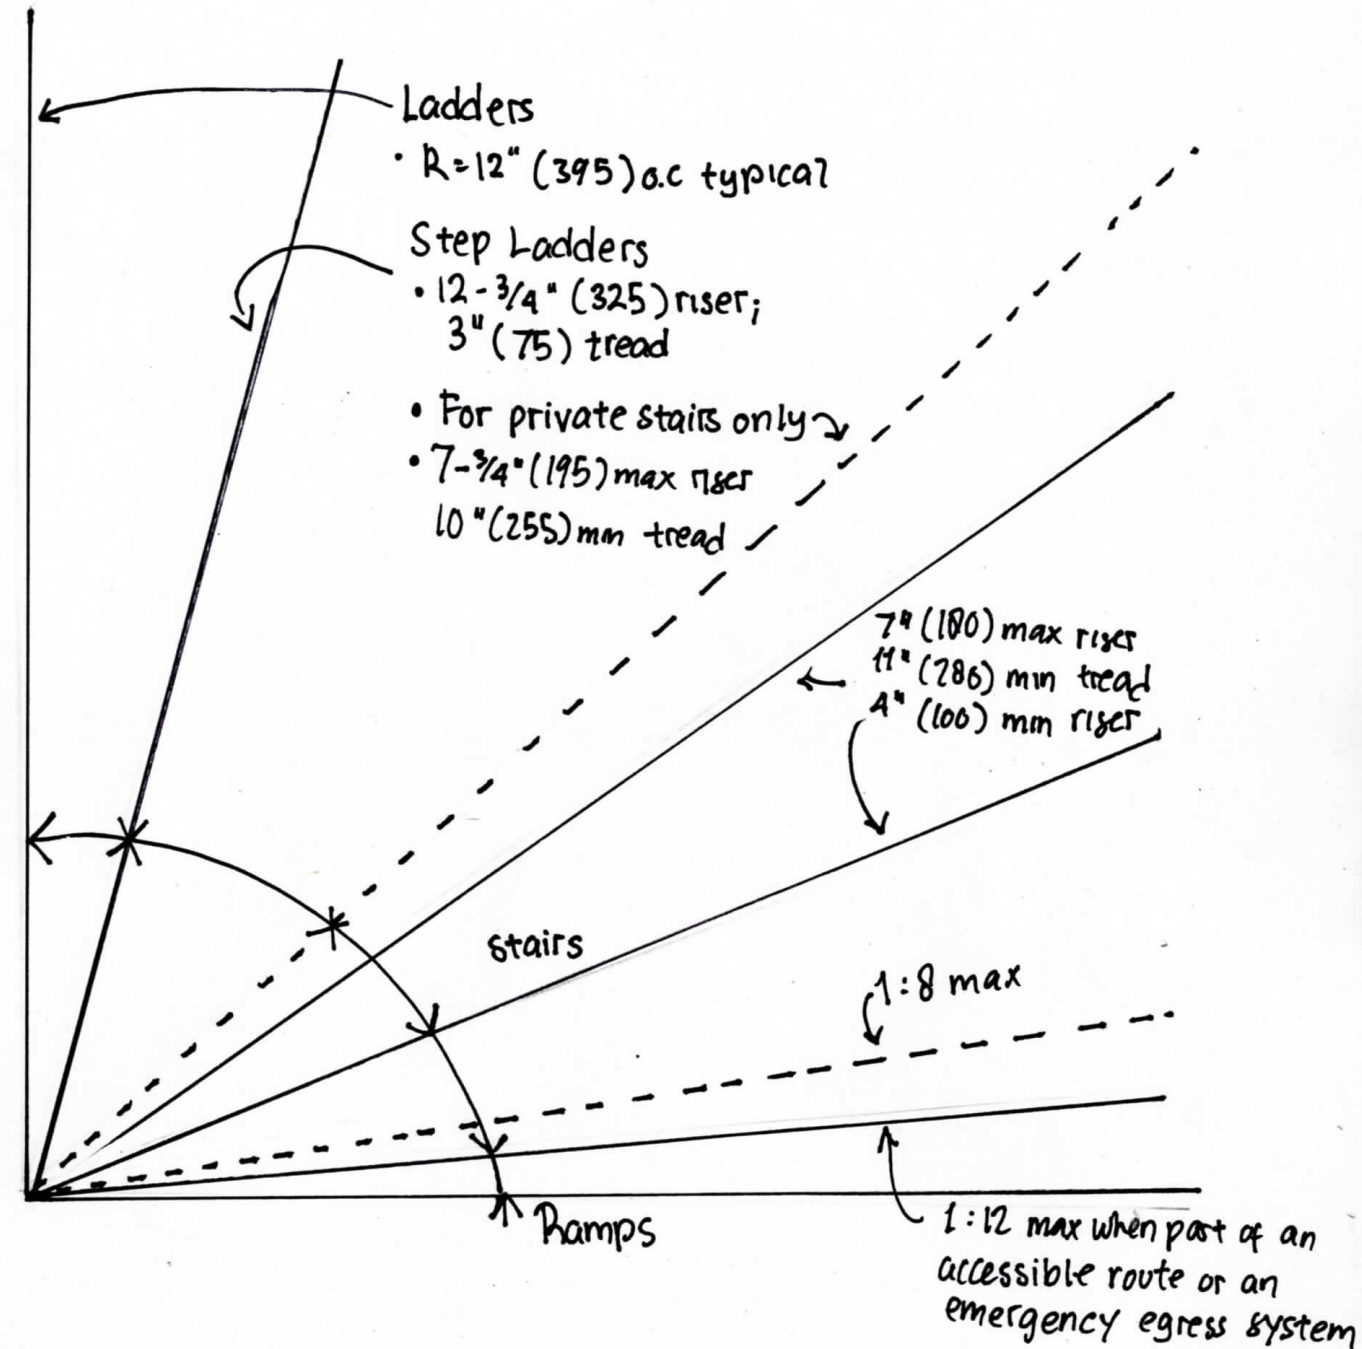 Ladders
• R=12" (395) o.c typical
Step Ladders
• 12-3/4" (325) riser;
3" (75) tread
• For private stairs only
• 7-3/4" (195) max riser
10" (255) min tread
7" (180) max riser
11" (286) min tread
4" (100) min riser
Stairs
1:8 max
Ramps
1:12 max when part of an
accessible route or an
emergency egress system